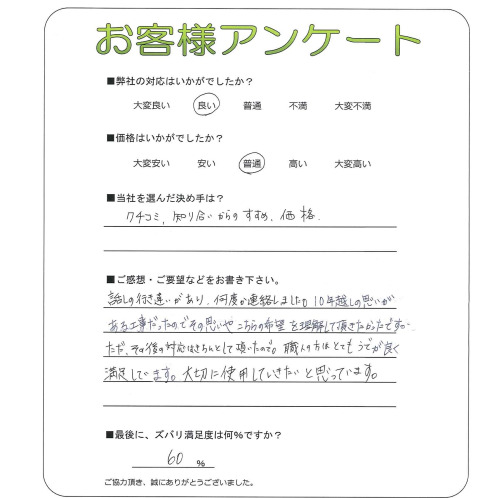 お客様アンケート
■弊社の対応はいかがでしたか？
大変良い 良い 普通 不満 大変不満
■価格はいかがでしたか？
大変安い 安い 普通 高い 大変高い
■当社を選んだ決め手は？
クチコミ、知り合いからのすすめ、価格.
■ご感想・ご要望などをお書き下さい。
話しの行き違いがあり、何度か連絡しました。10年越しの思いが
ある工事だったのでその思いや、こちらの希望を理解して頂きたかったです。
ただ、その後の対応はきちんとして頂いたので。職人の方はとてもうでが良く
満足してます。大切に使用していきたいと思っています。
■最後に、ズバリ満足度は何%ですか？
60 %
ご協力頂き、誠にありがとうございました。